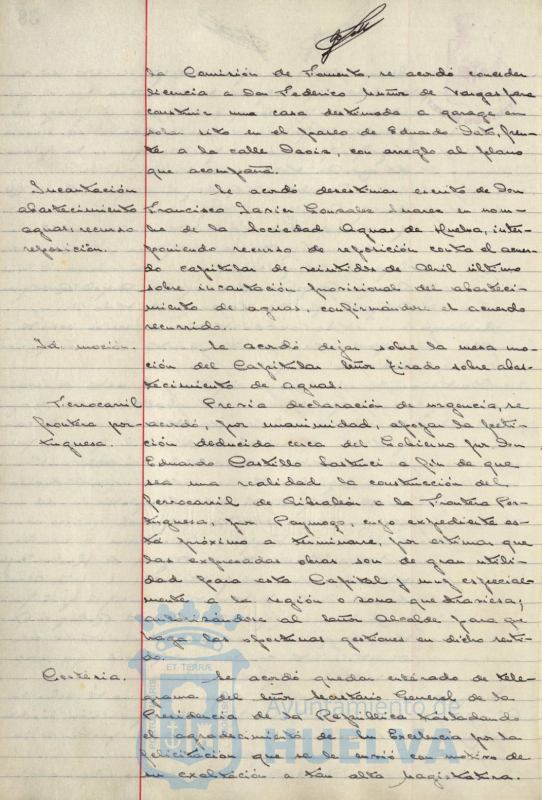 la Comisión de Fomento, se acordó conceder
licencia a Don Federico Muñoz de Vargas para
construir una casa destinada a garage en
solar sito en el paseo de Eduardo Dato, fren-
te a la calle Daoiz, con arreglo al plano
que acompaña.
Incautación
abastecimiento
aguas; recurso
reposición.
Se acordó desestimar escrito de Don
Francisco Javier Gonzalez Suarez en nom-
bre de la Sociedad Aguas de Huelva, inter-
poniendo recurso de reposición contra el acuer-
do capitular de veintidós de Abril último
sobre incautación provisional del abasteci-
miento de aguas, confirmándose el acuerdo
recurrido.
Id. moción.
Se acordó dejar sobre la mesa mo-
ción del Capitular Señor Tirado sobre abas-
tecimiento de aguas.
Ferrocarril
frontera por-
tuguesa.
Previa declaración de urgencia, se
acordó, por unanimidad, apoyar la peti-
ción deducida cerca del Gobierno por Don
Eduardo Castillo a fin de que
sea una realidad la construcción del
ferrocarril de Gibraleón a la Frontera Por-
tuguesa, por Paymogo, cuyo expediente es-
tá próximo a terminarse, por estimar que
las expresadas obras son de gran utili-
dad para esta Capital y muy especial-
mente a la región o zona que atraviesa;
autorizándose al Señor Alcalde para que
haga las oportunas gestiones en dicho senti-
do.
Cortesía.
Se acordó quedar enterado de tele-
grama del Señor Secretario General de la
Presidencia de la República trasladando
el agradecimiento de Su Excelencia por la
felicitación que se le envió con motivo de
su exaltación a tan alta Magistratura.
ET TERRÆ
Ayuntamiento de
HUELVA